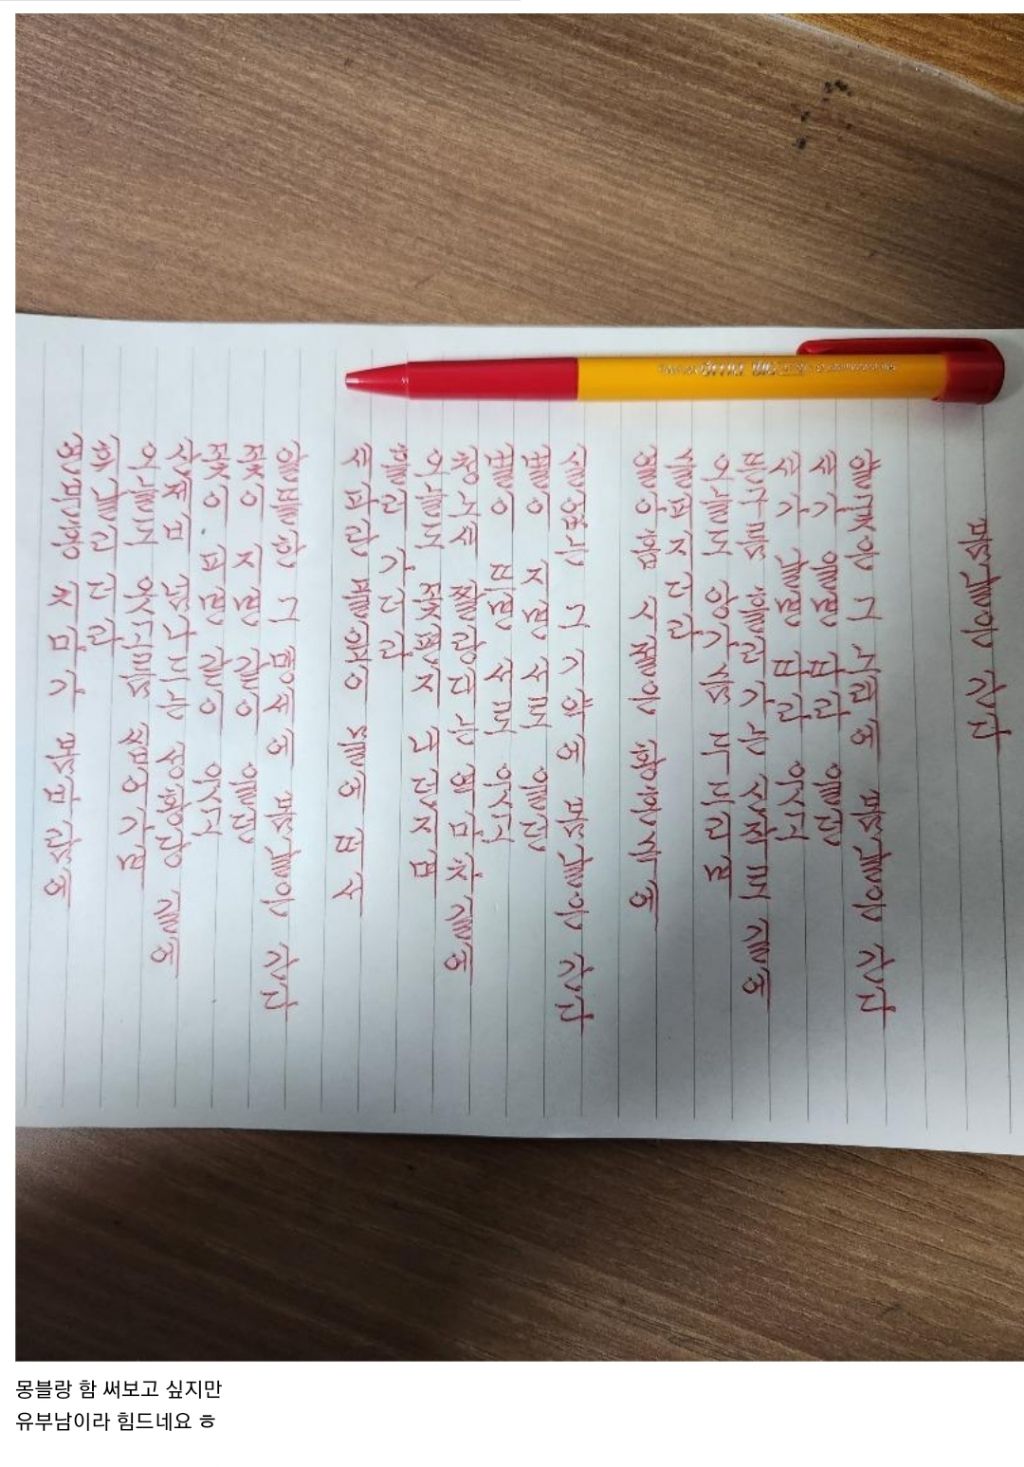 연분홍 치마가 봄바람에
휘날리더라
오늘도 옷고름 씹어가며
산제비 넘나드는 성황당 길에
꽃이 피면 같이 웃고
꽃이 지면 같이 울던
알뜰한 그 맹세에 봄날은 간다
새파란 풀잎이 물에 떠서
흘러 가더라
오늘도 꽃편지 내던지며
청노새 짤랑대는 역마차 길에
별이 뜨면 서로 웃고
별이 지면 서로 울던
실없는 그 기약에 봄날은 간다
열아홉 시절은 황혼속에
슬퍼지더라
오늘도 앙가슴 두드리며
뜬구름 흘러가는 신작로 길에
새가 날면 따라 웃고
새가 울면 따라 울던
얄궂은 그 노래에 봄날은 간다
봄날은 간다
OFFICE
몽블랑 함 써보고 싶지만
유부남이라 힘드네요 ㅎ